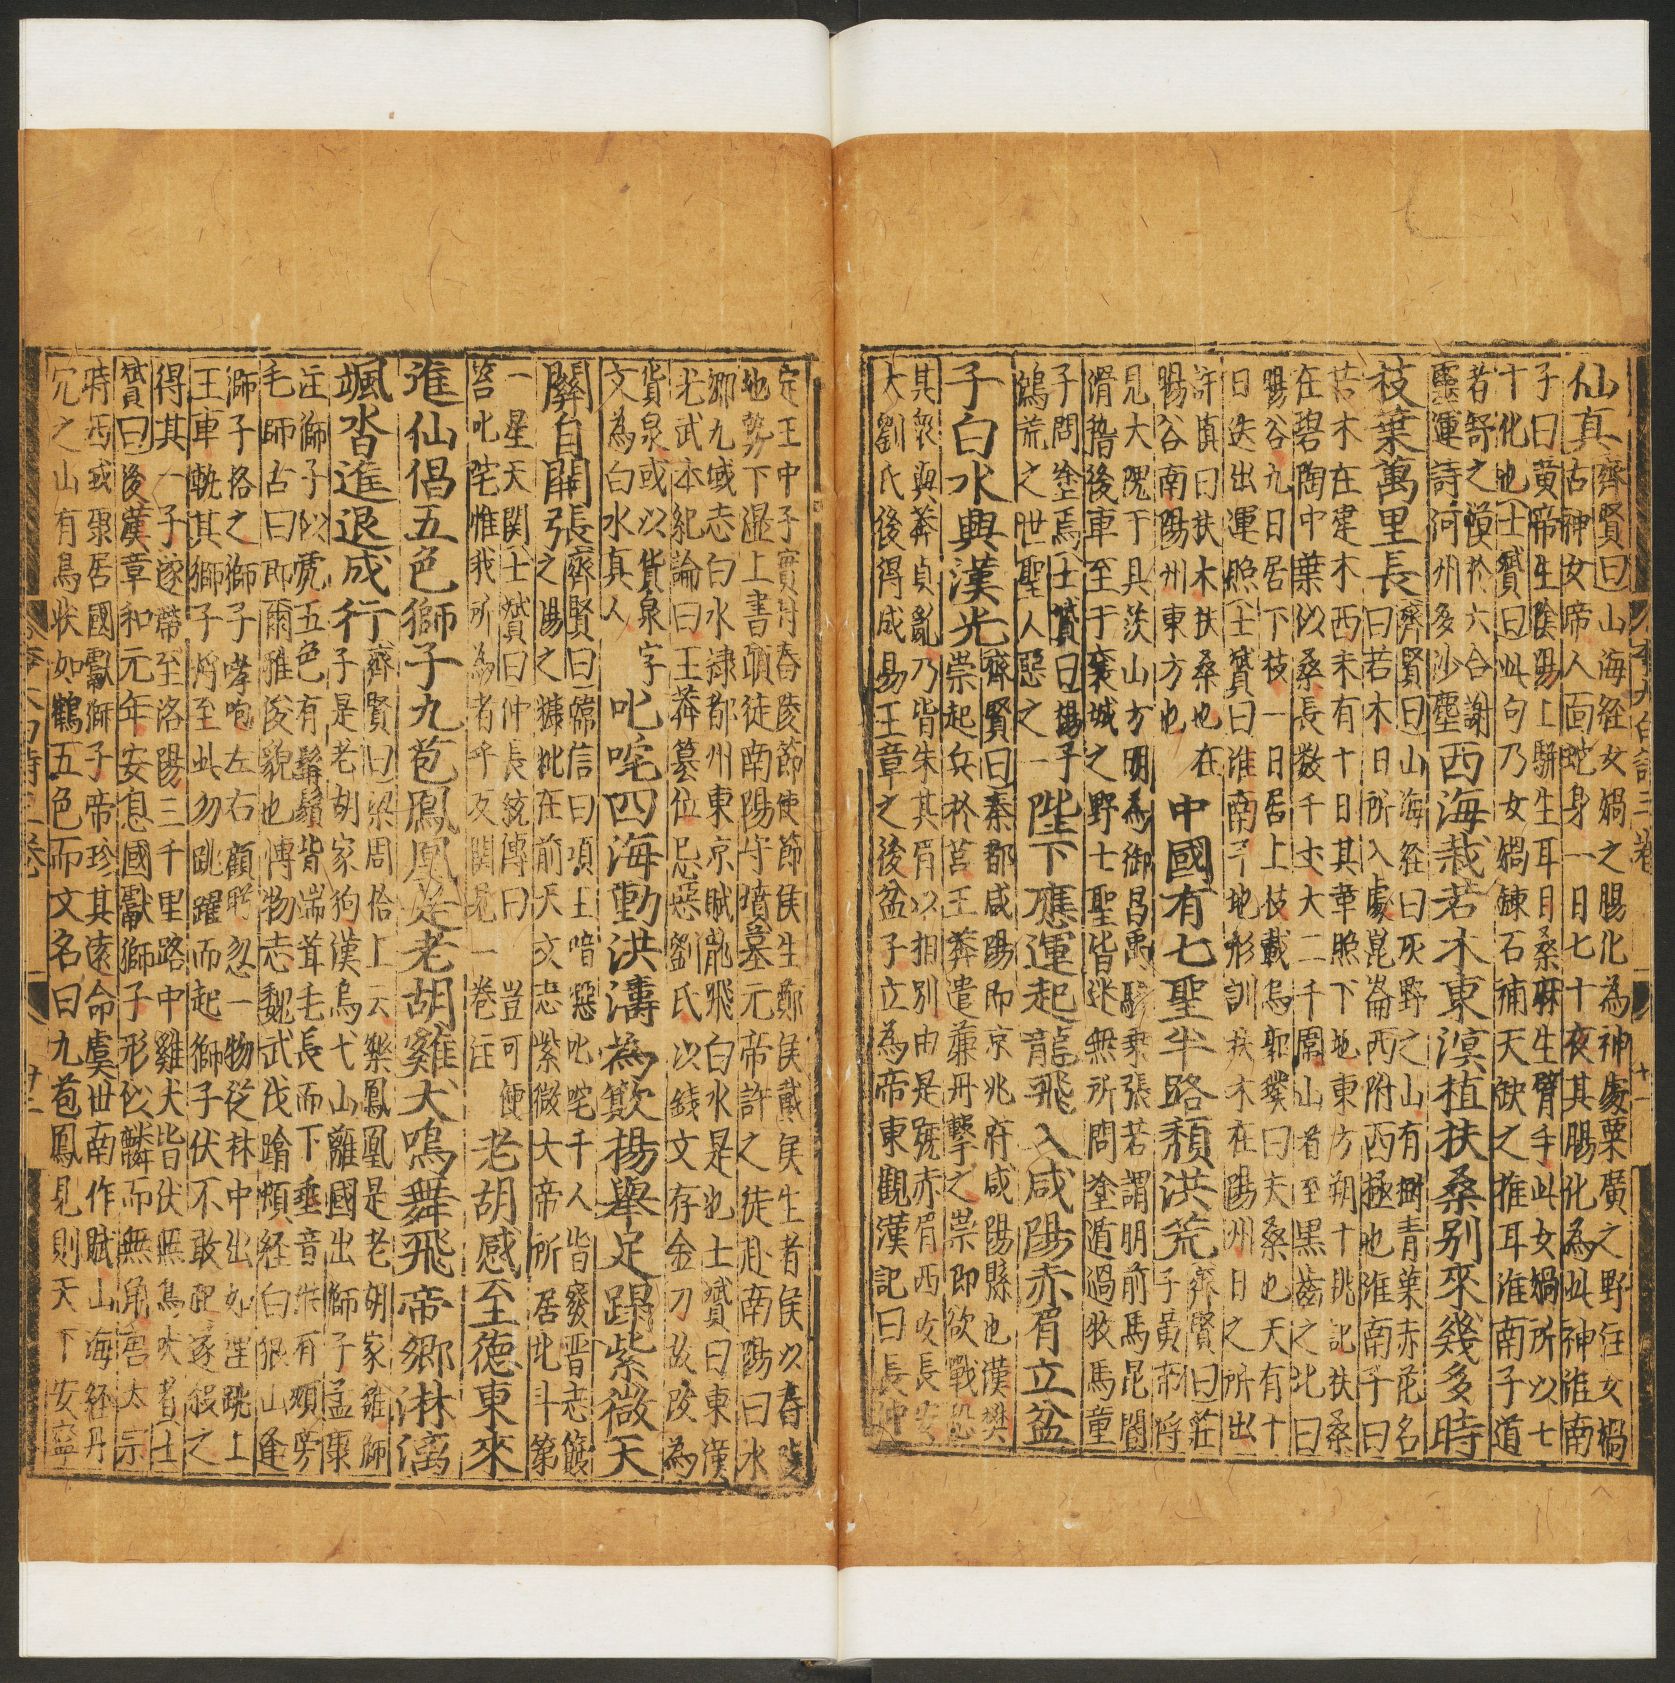 仙真
齊賢曰山海経女媧之腸化為神處粟廣之野注女媧
古神女帝人面蛇身一日七十夜其腸化為此神淮南
子曰黃帝生陰陽上駢生耳目桑麻生臂手此女媧所以七
十化也士贇曰此句乃女媧鍊石補天缺之推耳淮南子道
若舒之漠於六合謝
靈運詩河州多沙塵
西海栽若木東溟植扶桑别來幾多時
枝葉萬里長
齊賢曰山海経曰灰野之山有樹青葉赤花名
曰若木日所入處崑崙西附西極也淮南子曰
若木在建木西末有十日其華照下地東方朔十洲記扶桑
在碧陶中葉似桑長数千丈大二千圍山者至黒齒之北曰
暘谷九日居下枝一日居上枝載烏郭璞曰夫桑也天有十
日迭出運照士贇曰淮南子地形訓扶木在陽州日之所出
許慎曰扶木扶桑也在
暘谷南陽州東方也
中國有七聖半路頹洪荒
齊賢曰莊
子黃帝将
見大隗于具茨山方明為御昌㝢驂乗張若謂朋前馬昆閽
滑稽後車至于襄城之野士聖皆迷無所問塗適遇牧馬童
子問塗焉士贇曰揚子
鴻荒之世聖人惡之一
陛下應運起龍飛入咸陽赤眉立盆
子白水興漢光
齊賢曰秦都咸陽即京兆府咸陽縣也漢樊
崇起兵於莒王莽遣廉丹擊之崇即欲戰恐
其衆與莽貞亂乃皆朱其眉以相别由是號赤眉西攻長安
大劉氏後得成昜王章之後盆子立為帝東觀漢記曰長沙
定王中子買封舂陵節使節侯生鄭侯戴侯生者侯以舂陵
地勢下湿上書頭徒南陽守墳墓元帝許之徒赴南陽曰水
鄉九域志白水禄都州東京賦龍飛白水是也士贇曰東漢
光武本紀論曰王莽簒位忌惡劉氏以錢文存金刀故改為
貨泉或以貨泉字
文為白水真人
叱咤四海動洪濤為歘楊舉足蹋紫微天
關自開張
齊賢曰韓信曰項王喑惡叱咤千人皆廢晋志簇
之陽之糠枇在前天文志紫微大帝所居北斗第
一星天関士贇曰仲長統傳曰豈可便
答叱咤惟我所為者乎及関見一卷注
老胡感至徳東來
進仙倡五色獅子九苞鳳凰是老胡雞犬鳴舞飛帝鄉淋漓
颯沓進退成行
齊賢曰梁周佁上云樂鳳凰是老胡家雞師
子是老胡家狗漢烏弋山離國出師子孟康
注獅子似虎五色有髯鬚皆耑茸毛長而下垂音洪有頰旁
毛師古曰即爾雅狻貌也愽物志魏武伐蹋頓経白狼山逢
獅子格之獅子哮咆左右顧眄忽一物從林中出如狸跳上
王車軏其獅子将至此勿跳躍而起獅子伏不敢起遂殺之
得其一子遂帶至洛陽三千里路中雞犬皆伏無鳴吠者士
贇曰後漢章和元年安息國獻獅子形似麟而無角唐太宗
時西域康居國獻獅子帝珍其遠命虞世南作賦山海経丹
冗之山有鳥状如鶴五色而文名曰九苞鳳見則天下安寧